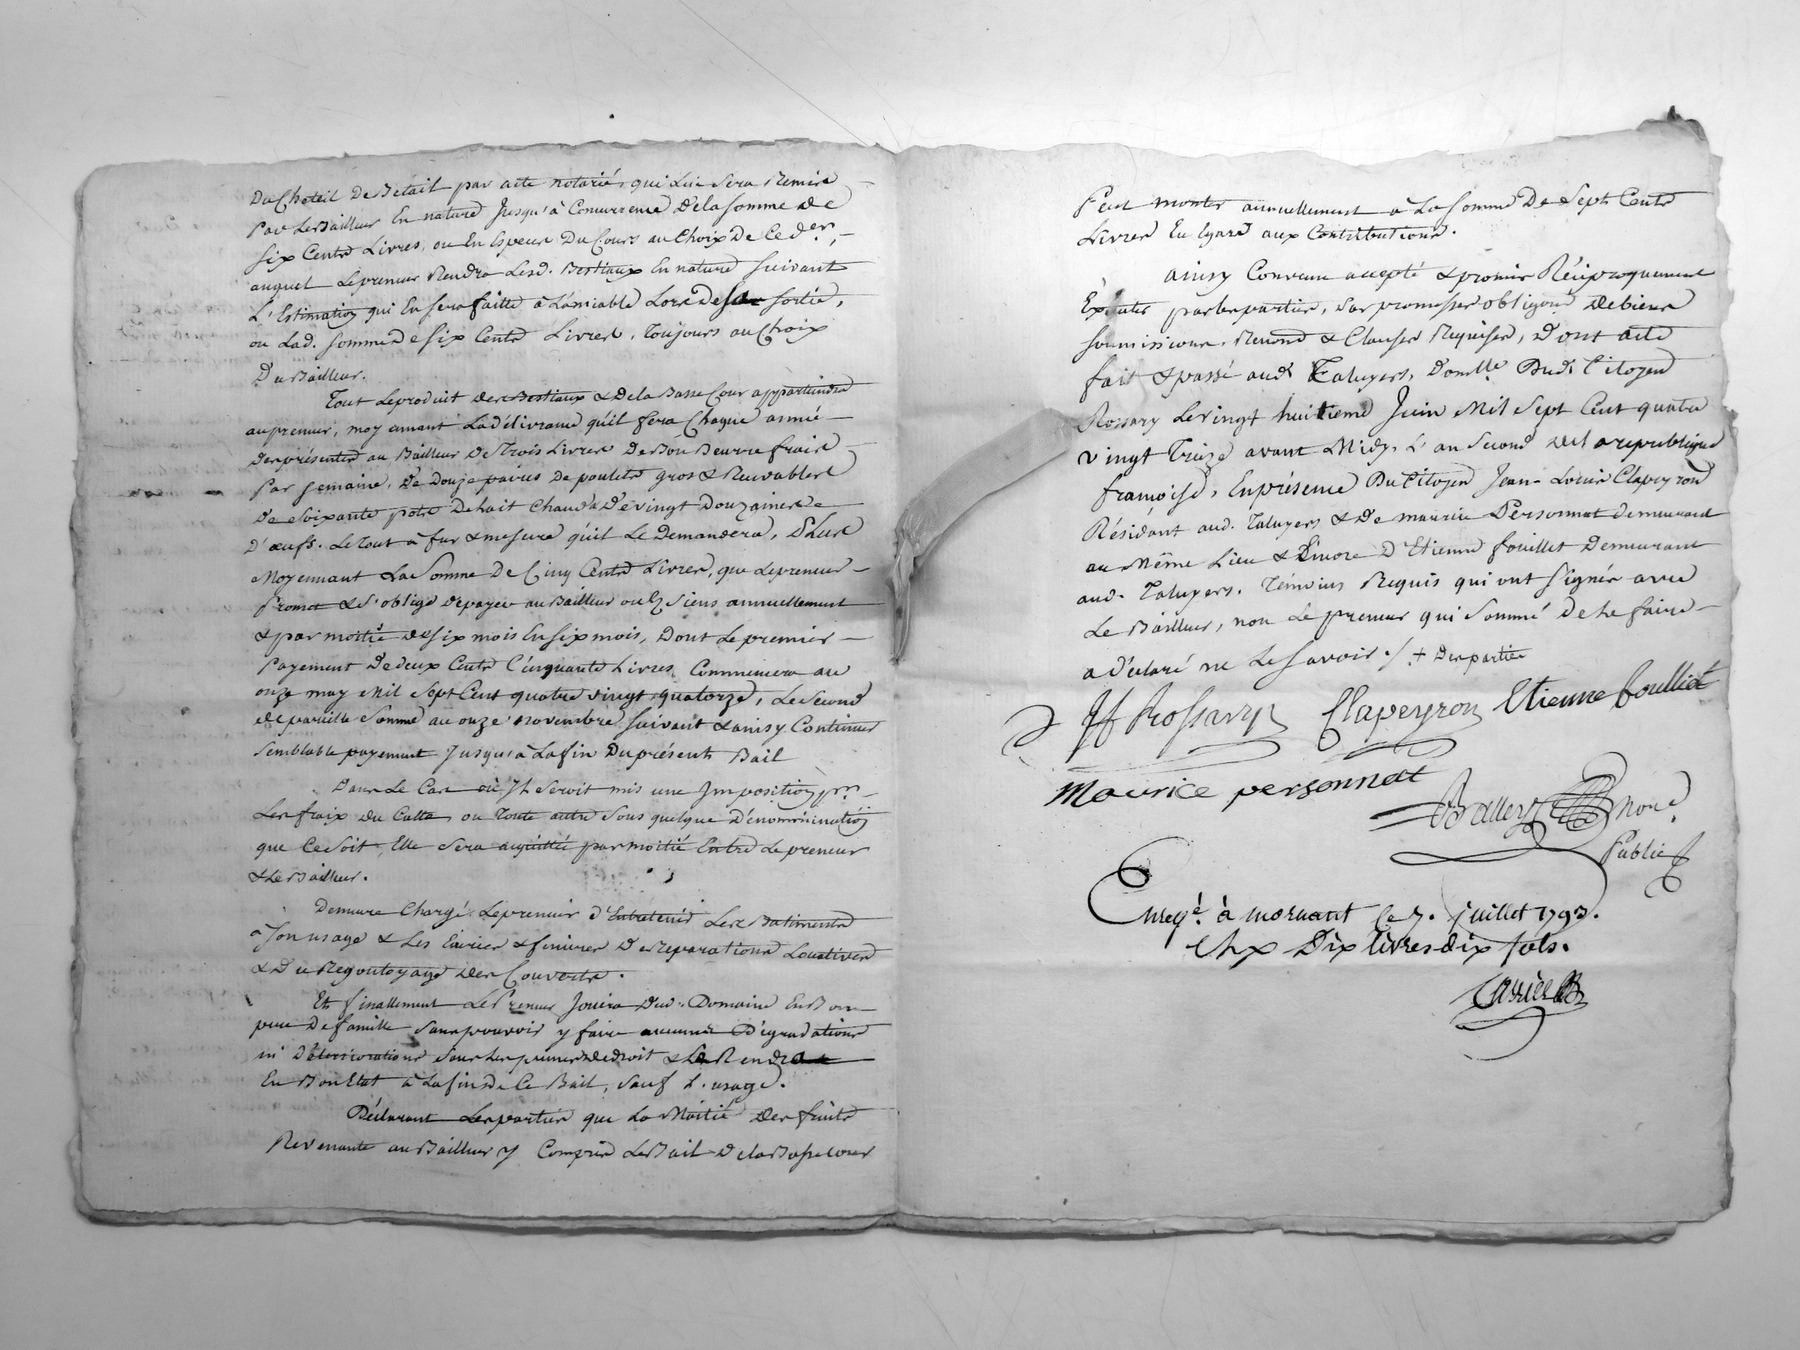 Du Cheteil De Bétail par acte notarié, qui Lui Sera Remise
Par Le Bailleur En nature Jusqu'à Concurrence De la Somme de
Six Cents Livres, ou En Espece Du Cours au Choix De Ce der.er,
auquel Le preneur Rendra Lesd. Bestiaux En nature Suivant
L'Estimation qui En Sera faitte à L'amiable Lors de sa sortie,
ou Lad. Somme de Six Cents Livres, Toujours au Choix
Du Bailleur.
Tout Le produit des Bestiaux & De la Basse Cour appartiendra
au preneur, moyennant La délivrance qu'il fera Chaque année
des présents au Bailleur De Trois Livres De Bon Beurre frais
Par Semaine, De Douze paires De poulets gros & Recevables
De Soixante pots De Lait Chaud & De vingt Douzaines de
D'œufs. Le Tout à fur & mesure qu'il Le Demandera, Plus
Moyennant La Somme De Cinq Cents Livres, que Le preneur
Promet & S'oblige De payer au Bailleur ou es Siens annuellement
& par moitié de Six mois En Six mois, Dont Le premier
Payement De deux Cents Cinquante Livres Commencera au
onze may Mil Sept Cent quatre vingt quatorze, Le Second
de pareille Somme au onze novembre Suivant & ainsy Continuer
Semblable payement Jusqu'à La fin Du présent Bail
Dans Le Cas où Il Seroit mis une Imposition pr.
Les fraix du Culte, ou Toute autre Sous quelque Dénomination
que Ce Soit, Elle Sera acquittée par moitié Entre Le preneur
& Le Bailleur.
Demeure Chargé Le preneur d'Entretenir Les Batiments
à Son usage & Les Ecuries & feniéres De Reparations Locatives
& Du Regoutoyage des Couverts.
Et finallement Le Preneur Jouira Dud. Domaine En Bon
pere De famille Sans pouvoir y faire aucunes Dégradations
ni Déteriorations Sous Les peines de droit & Le Rendra
En Bon Etat à La fin De Ce Bail, Sauf L'usage.
Déclarant Les parties que La Moitié Des fruits
Revenante au Bailleur y Compris Le Bail De la Basse Cour
Peut monter annuellement à La Somme De Sept Cents
Livres Eu Egard aux Contributions.
ainsy Convenu accepté & promis Réciproquement
Exécuter par les parties, Par promesses obligons de biens
Soumissions, Renond & Clauses Requises, Dont acte
fait & passé aud. Taluyers, Domlle Dud. Citoyen
Rossary Le vingt huitieme Juin Mil Sept Cent quatre
vingt Treize avant Midy, L'an Second de la republique
françoise, En présence Du Citoyen Jean-Louis Clapeyron
Résidant aud. Taluyers & De maurice Personnat demeurant
au Même Lieu & Encore D'Etienne fouillet Demeurant
aud. Taluyers. Témoins Requis qui ont Signés avec
Le Bailleur, non Le preneur qui Sommé de Le faire
a déclaré ne Le Savoir ./. + Des parties
Jf Rossary Clapeyron Etienne foulliet
Maurice personnat
Balley not.
Public
Enreg.é à mornant le 7. juillet 1793.
Dix livres dix sols.